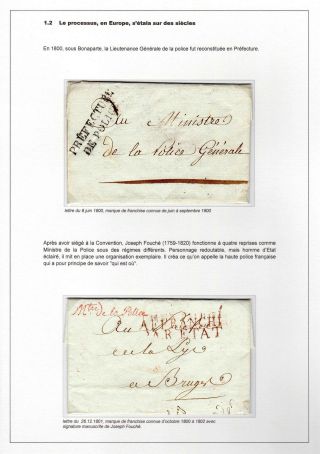 1.2 Le processus, en Europe, s'étala sur des siècles
En 1800, sous Bonaparte, la Lieutenance Générale de la police fut reconstituée en Préfecture.
PRÉFECTURE
DE POLICE
Au Ministre
de la Police Générale
lettre du 8 juin 1800, marque de franchise connue de juin à septembre 1800
Après avoir siégé à la Convention, Joseph Fouché (1759-1820) fonctionne à quatre reprises comme
Ministre de la Police sous des régimes différents. Personnage redoutable, mais homme d'Etat
éclairé, il mit en place une organisation exemplaire. Il créa ce qu'on appelle la haute police française
qui a pour principe de savoir "qui est où".
de la Police
Au
AFFRANCHI
PAR ETAT
de la Lys
a Bruges
lettre du 26.12.1801, marque de franchise connue d'octobre 1800 à 1802 avec
signature manuscrite de Joseph Fouché.